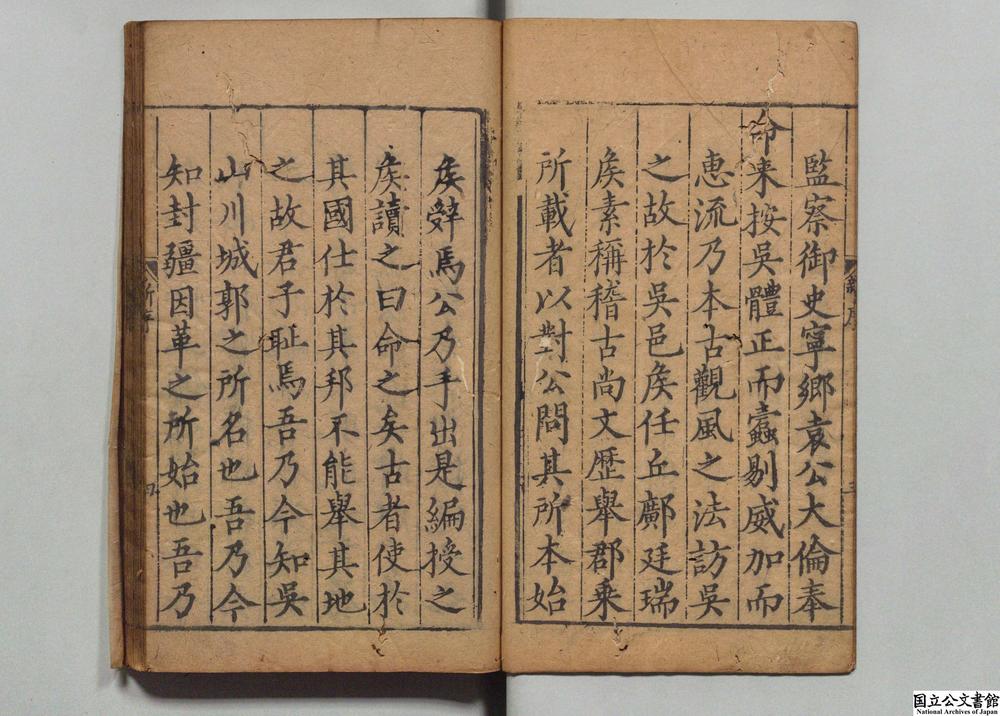 監察御史寧鄉袁公大倫奉
命来按吳體正而蠹剔威加而
惠流乃本古觀風之法訪吳
之故於吳邑矦任丘鄺廷瑞
矦素稱稽古尚文歴舉郡乗
所載者以對公問其所本始
矦辤焉公乃手出是編授之
矦讀之曰命之矣古者使於
其國仕於其邦不能舉其地
之故君子耻焉吾乃今知吳
山川城郭之所名也吾乃今
知封疆因革之所始也吾乃
三
四
国立公文書館
National Archives of Japan